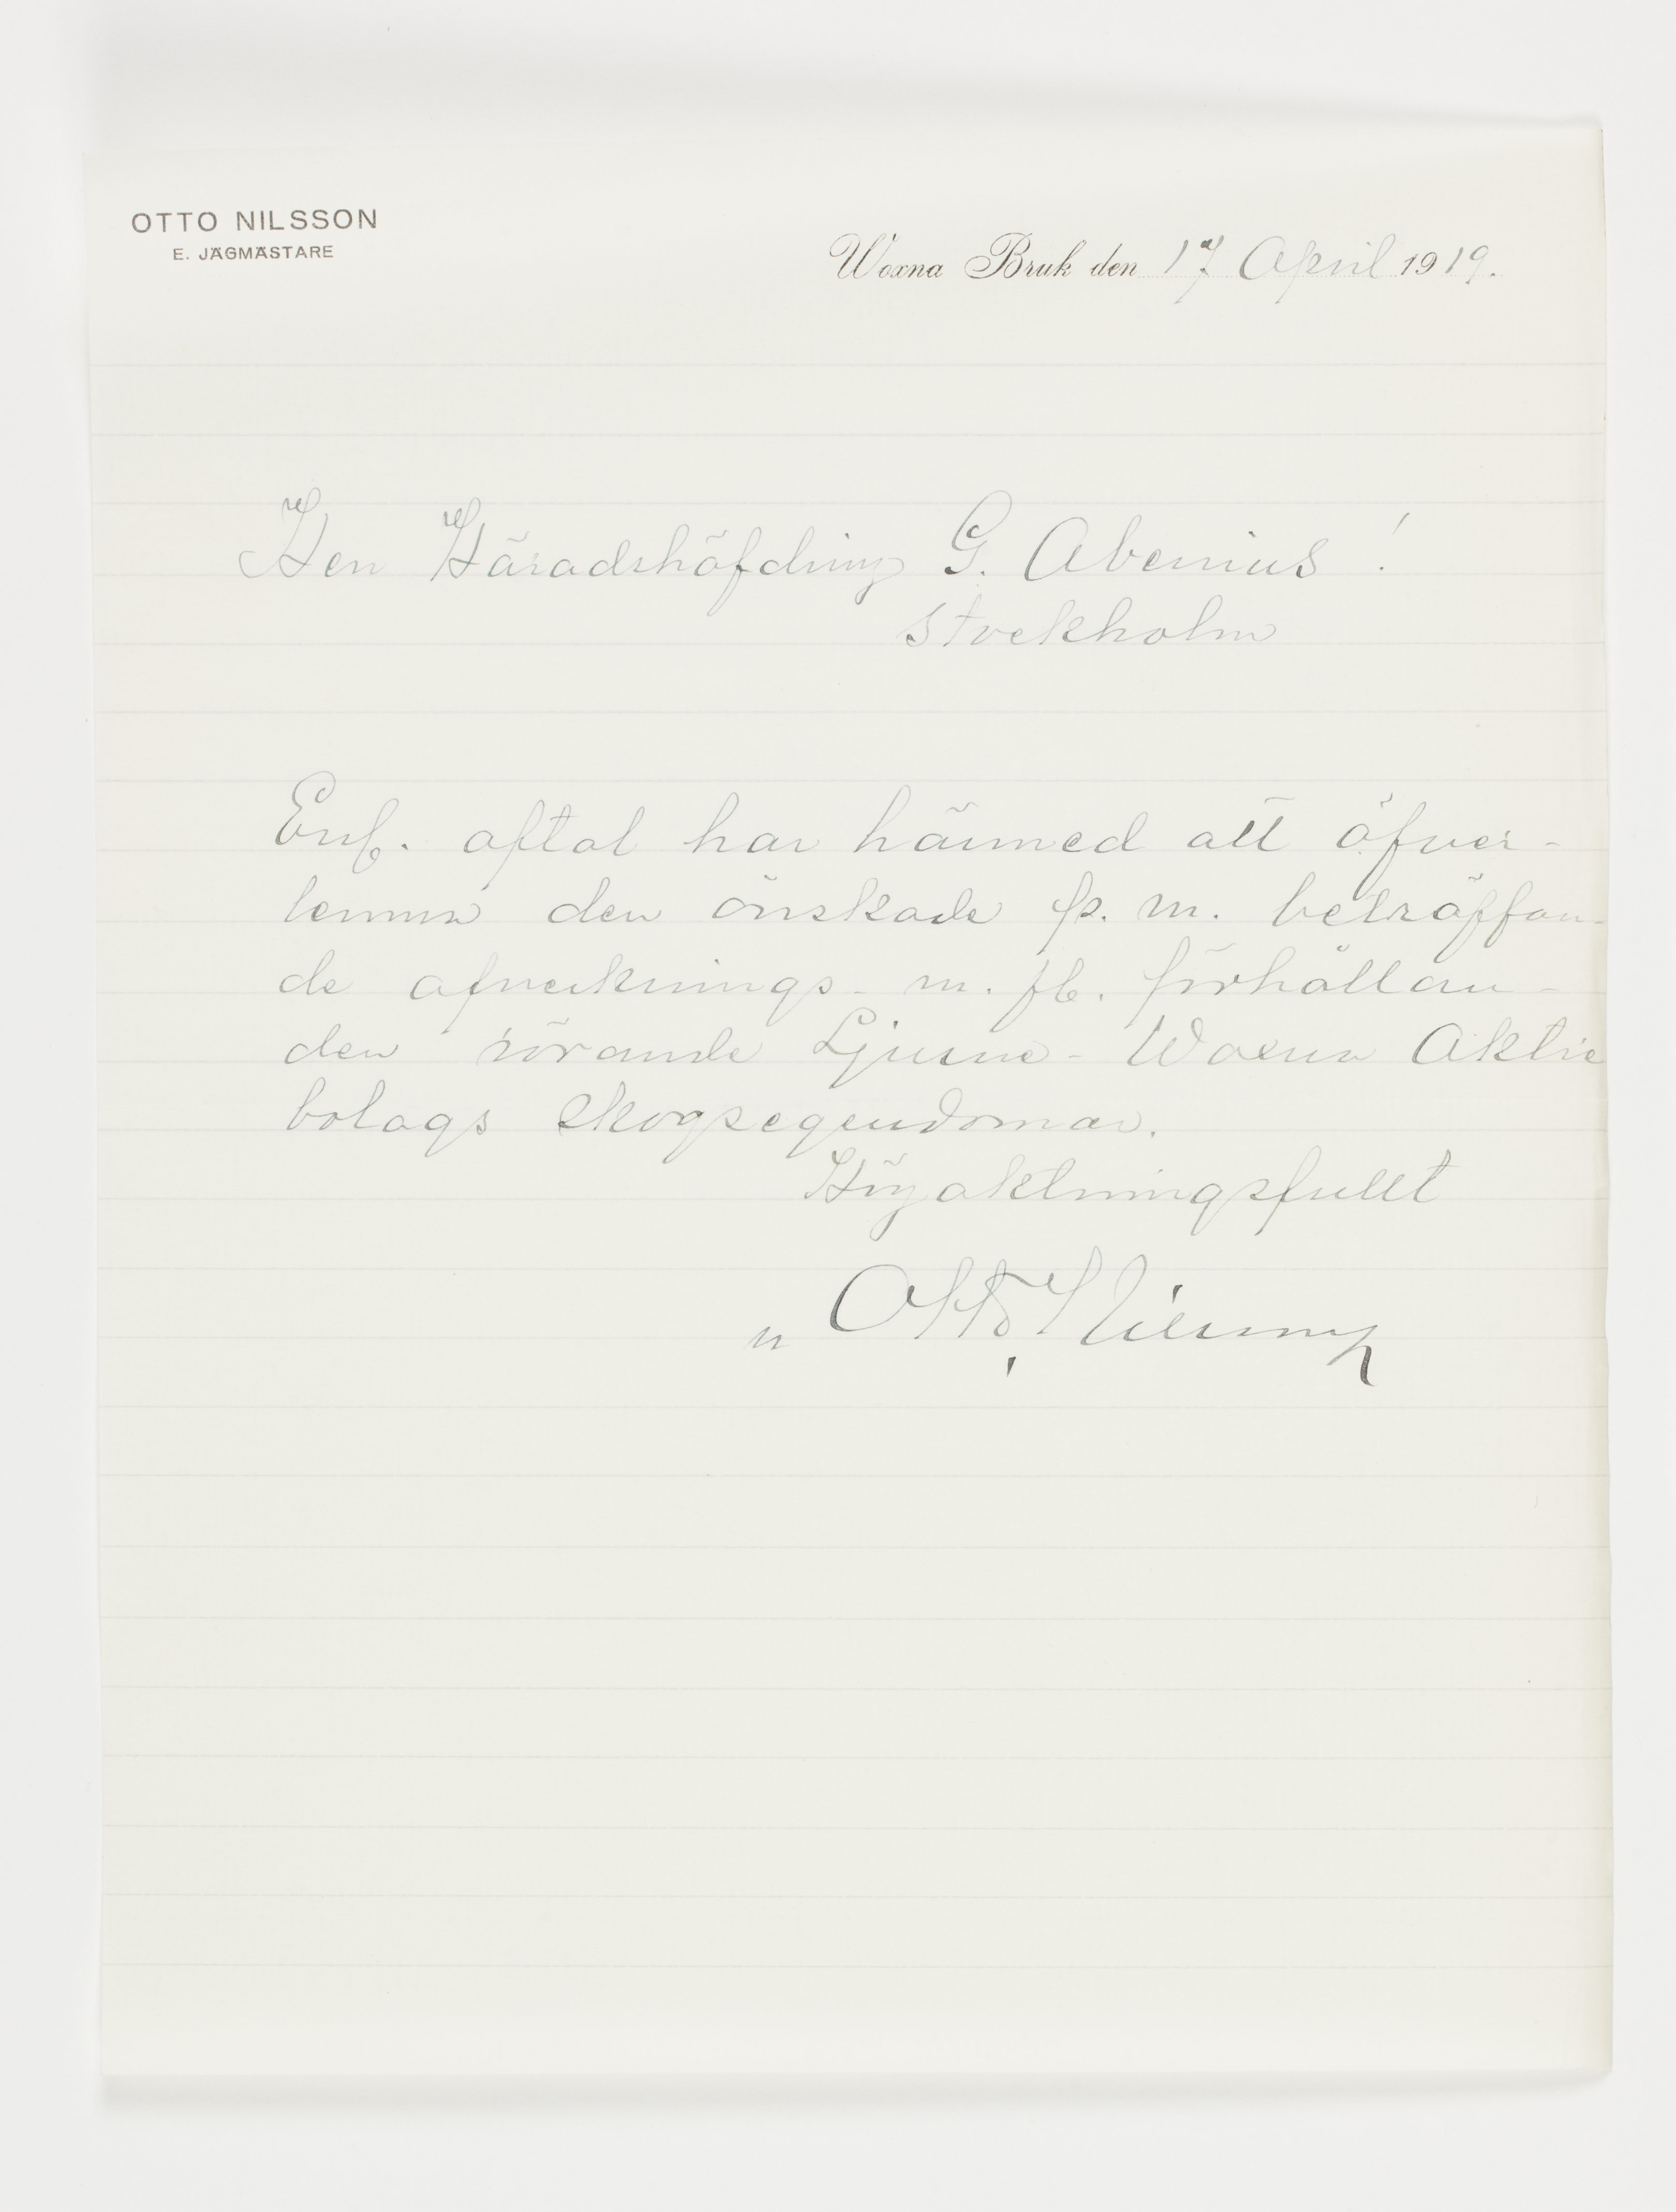 OTTO NILSSON
E. JÄGMÄSTARE
Woxna Bruk den 17 April 1919.
Herr Häradshöfding G. Abenius!
Stockholm
Enl. aftal har härmed att öfver-
lemna den önskade p. m. beträffan-
de afverknings- m. fl. förhållan-
den rörande Ljusne-Woxna Aktie
bolags skogsegendomar.
Högaktningsfullt
Otto Nilsson